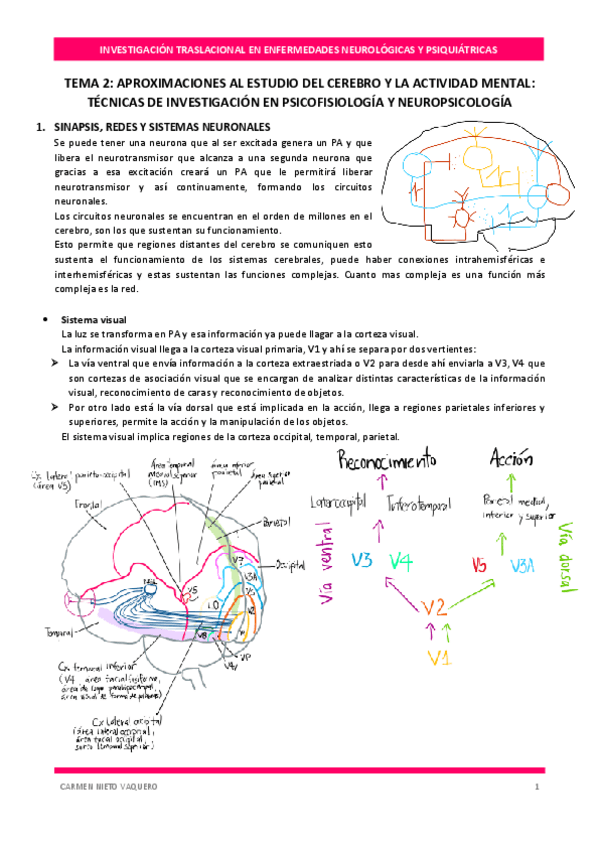 INVESTIGACIÓN TRASLACIONAL EN ENFERMEDADES NEUROLÓGICAS Y PSIQUIÁTRICAS
TEMA 2: APROXIMACIONES AL ESTUDIO DEL CEREBRO Y LA ACTIVIDAD MENTAL:
TÉCNICAS DE INVESTIGACIÓN EN PSICOFISIOLOGÍA Y NEUROPSICOLOGÍA
1. SINAPSIS, REDES Y SISTEMAS NEURONALES
Se puede tener una neurona que al ser excitada genera un PA y que
libera el neurotransmisor que alcanza a una segunda neurona que
gracias a esa excitación creará un PA que le permitirá liberar
neurotransmisor y así continuamente, formando los circuitos
neuronales.
Los circuitos neuronales se encuentran en el orden de millones en el
cerebro, son los que sustentan su funcionamiento.
Esto permite que regiones distantes del cerebro se comuniquen esto
sustenta el funcionamiento de los sistemas cerebrales, puede haber conexiones intrahemisféricas e
interhemisféricas y estas sustentan las funciones complejas. Cuanto mas compleja es una función más
compleja es la red.
• Sistema visual
La luz se transforma en PA y esa información ya puede llagar a la corteza visual.
La información visual llega a la corteza visual primaria, V1 y ahí se separa por dos vertientes:
➢ La vía ventral que envía información a la corteza extraestriada o V2 para desde ahí enviarla a V3, V4 que
son cortezas de asociación visual que se encargan de analizar distintas características de la información
visual, reconocimiento de caras y reconocimiento de objetos.
➢ Por otro lado está la vía dorsal que está implicada en la acción, llega a regiones parietales inferiores y
superiores, permite la acción y la manipulación de los objetos.
El sistema visual implica regiones de la corteza occipital, temporal, parietal.
Cx lateral parieto-occipital
(área V5)
Área temporal
medial superior
(TMS)
área inferior
parietal
área superior
parietal
Frontal
Parietal
Occipital
V3
V3A
V5
V5
V2
LO
V8
VP
V4
Temporal
Cx temporal inferior
(V4 área facial fusiforme,
Cx lateral occipital
(área lateral occipital,
área facial occipital,
surco temporal superior)
Reconocimiento
Acción
Laterooccipital
Inferotemporal
Parietal medial,
inferior y superior
Vía ventral
V3
V4
V5
V3A
Vía dorsal
V2
V1
CARMEN NIETO VAQUERO
1